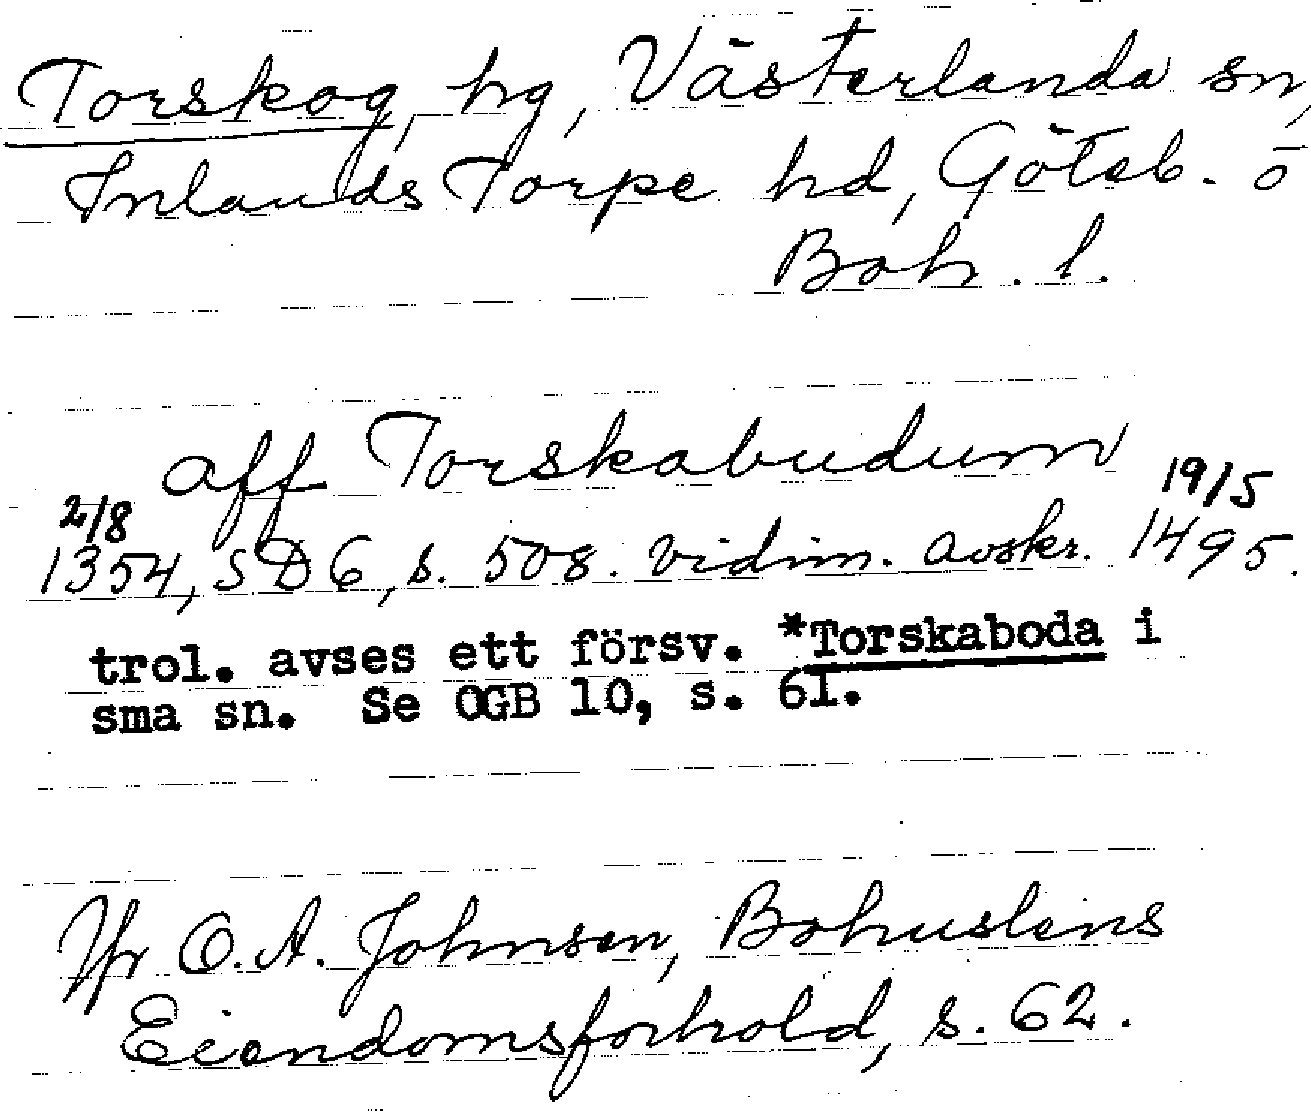 Torskog, hg, Västerlanda sn,
Inlands Torpe hd, Göteb. o
Boh. l.
aff Torskabudum
2/8 19/5
1354, SD 6, s. 508. vidim. avskr. 1495.
trol. avses ett försv. *Torskaboda i
sma sn. Se OGB 10, s. 61.
Jfr O.A. Johnsen, Bohusléns
Eiendomsforhold, s. 62.